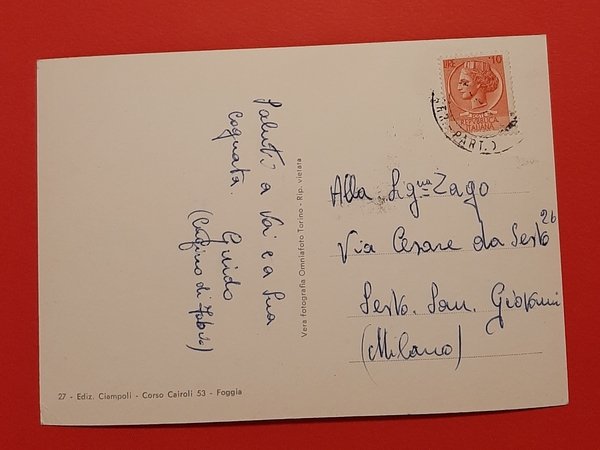 Saluti a Voi e a Sua
cognata.
Guido
(Cugino di
LIRE 10
POSTE
REPUBBLICA
ITALIANA
PART.)
Alla Sig.na Zago
Via Cesare da Sesto 26
Sesto San Giovanni
(Milano)
Vera fotografia Omniafoto Torino - Rip. vietata
27 - Ediz. Ciampoli - Corso Cairoli 53 - Foggia